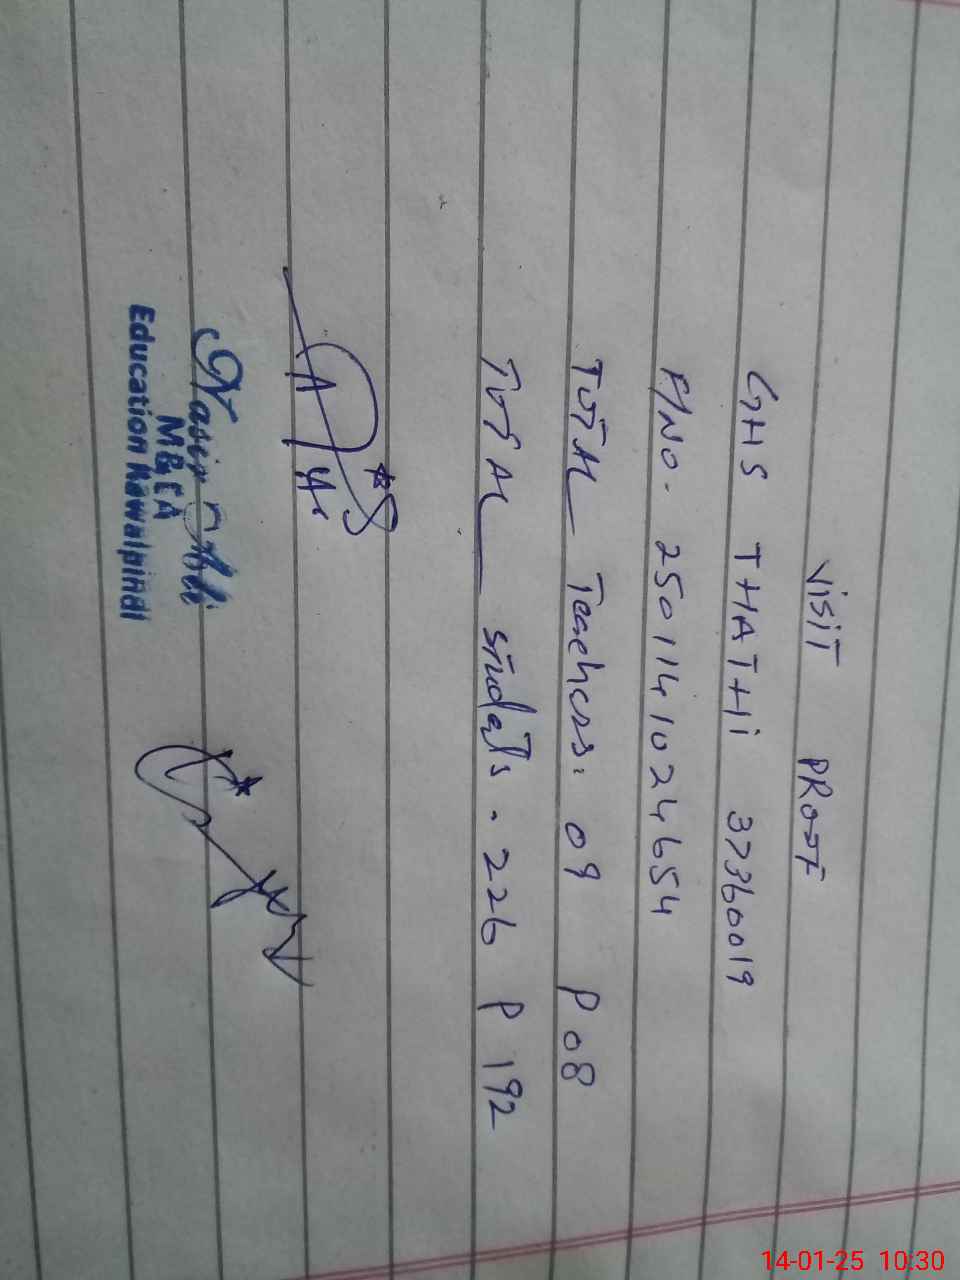 VISIT PROOF
GHS THATHI 37360019
R/NO. 2501141024654
TOTAL Teachers: 09 P 08
TOTAL students . 226 P 192
Nasir Ali
M&EA
Education Rawalpindi
14-01-25 10:30